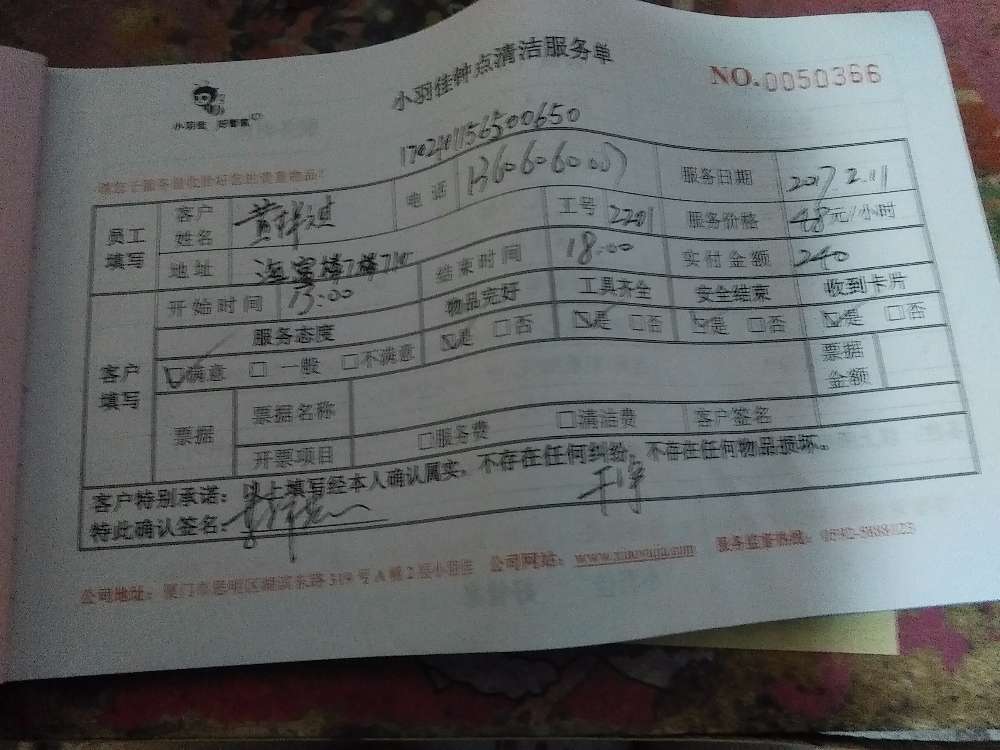 小羽佳 好管家
小羽佳钟点清洁服务单
NO.0050366
170240156500650
请您于服务前收拾好您的贵重物品!
员工填写 客户姓名 电话 服务日期 2017.2.11
地址 工号 2201 服务价格 48元/小时
开始时间 13:00 结束时间 18:00 实付金额 240
客户填写 服务态度 物品完好 工具齐全 安全结束 收到卡片
☑满意 □一般 □不满意 ☑是 □否 ☑是 □否 ☑是 □否 ☑是 □否
票据 票据名称 票据金额
开票项目 □服务费 □清洁费 客户签名
客户特别承诺:以上填写经本人确认属实,不存在任何纠纷,不存在任何物品损坏。
特此确认签名:
公司地址:厦门市思明区湖滨东路319号A幢2层小羽佳 公司网站:www.xiaoyujia.com 服务监督热线: